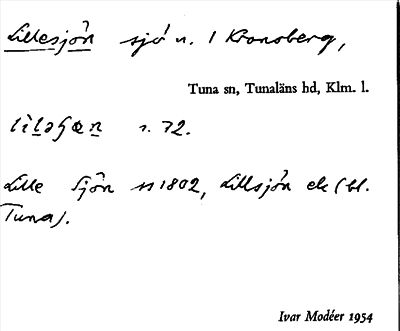 Lillesjön sjö n. 1 Kronoberg,
Tuna sn, Tunaläns hd, Klm. l.
s. 72.
Lille Sjön 1802, Lillsjön ek (bl.
Tuna).
Ivar Modéer 1954